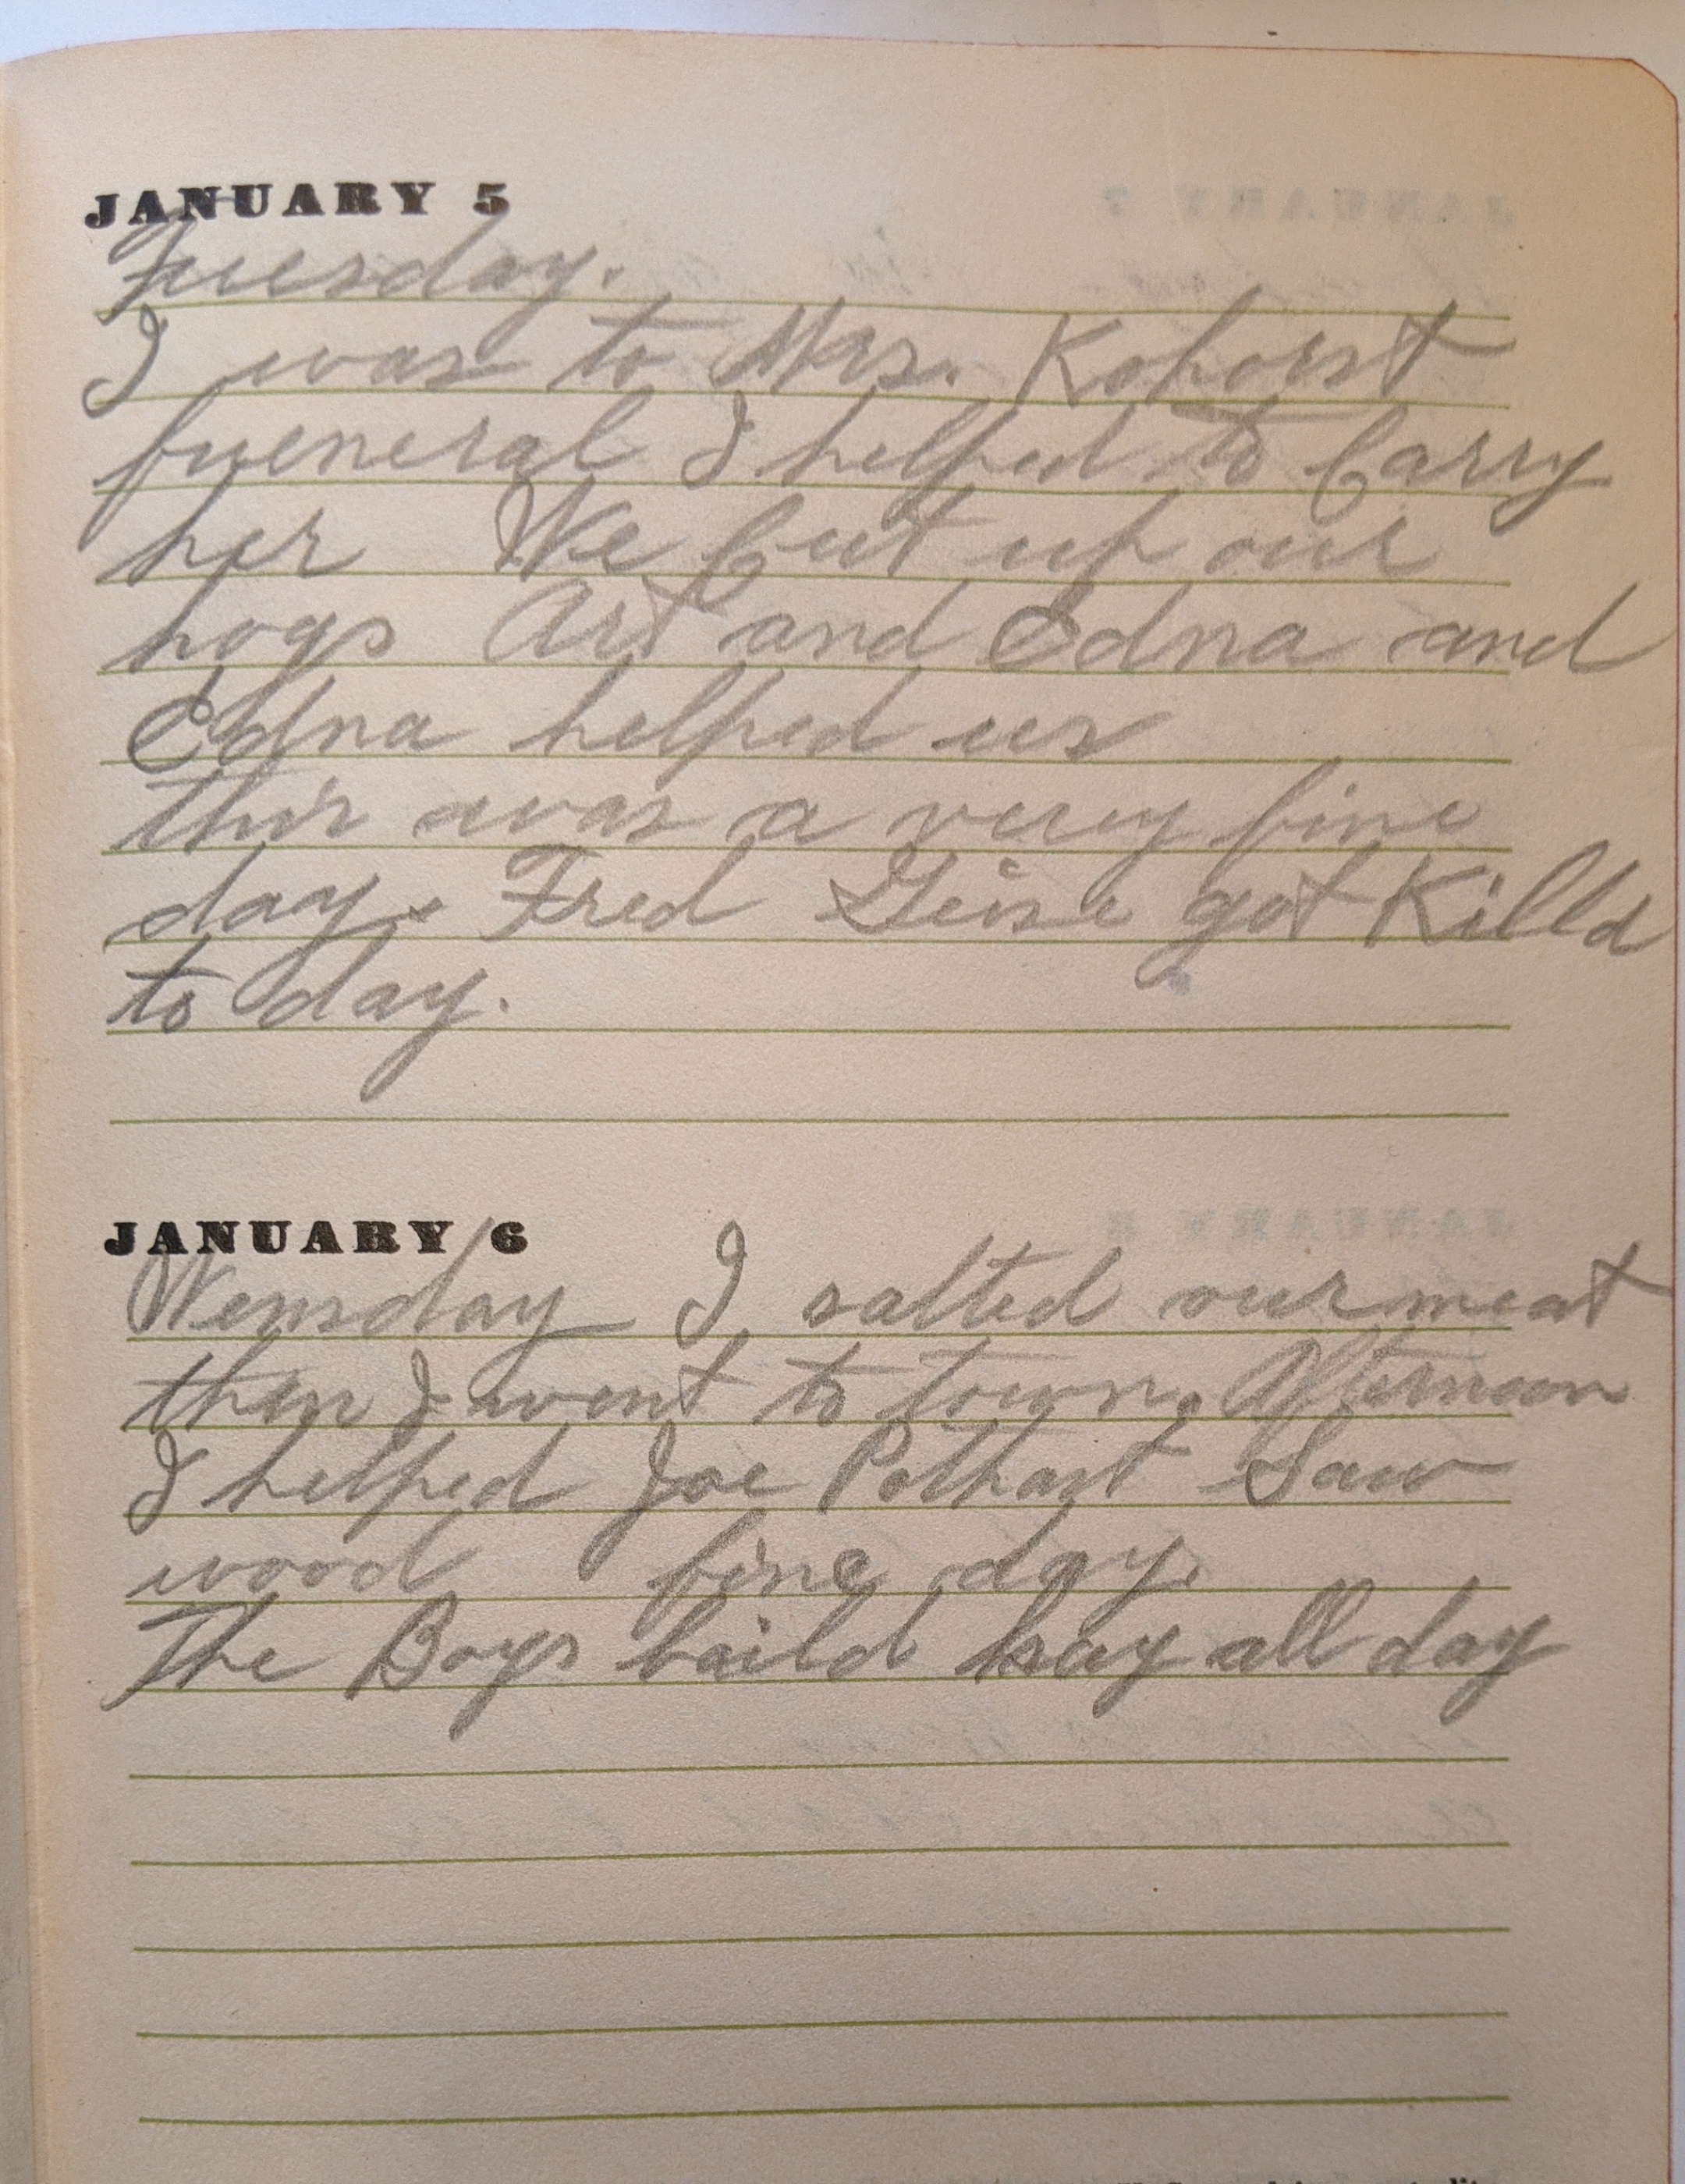 JANUARY 5
Tuesday.
I was to Mrs. Kohorst
fueneral I helped to Carry
her We Cut up our
hogs Art and Edna and
Edna helped us
this was a very fine
day. Fred Geise got Killd
to day.
JANUARY 6
Wensday I salted our meat
then I went to town. Afternoon
I helped Joe Pothast Saw
wood fine day.
The Boys baild hay all day